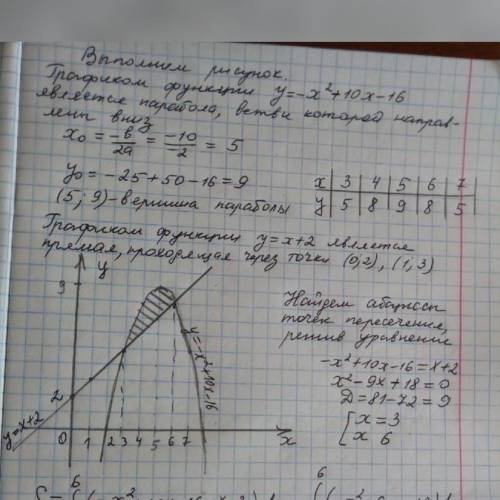 Выполнем рисунок.
Графиком функции y=-x²+10x-16
является парабола, ветви которой направ-
лены вниз
x₀ = -b/2a = -10/-2 = 5
y₀ = -25+50-16=9
(5; 9)-вершина параболы
x | 3 | 4 | 5 | 6 | 7
y | 5 | 8 | 9 | 8 | 5
Графиком функции y=x+2 является
прямая, проходящая через точки (0,2), (1,3)
y
9
2
0 1 2 3 4 5 6 7 x
y=x+2
y=-x²+10x-16
Найдем абциссы
точек пересечения,
решив уравнение
-x²+10x-16=x+2
x²-9x+18=0
D=81-72=9
{x=3
x 6
6
6